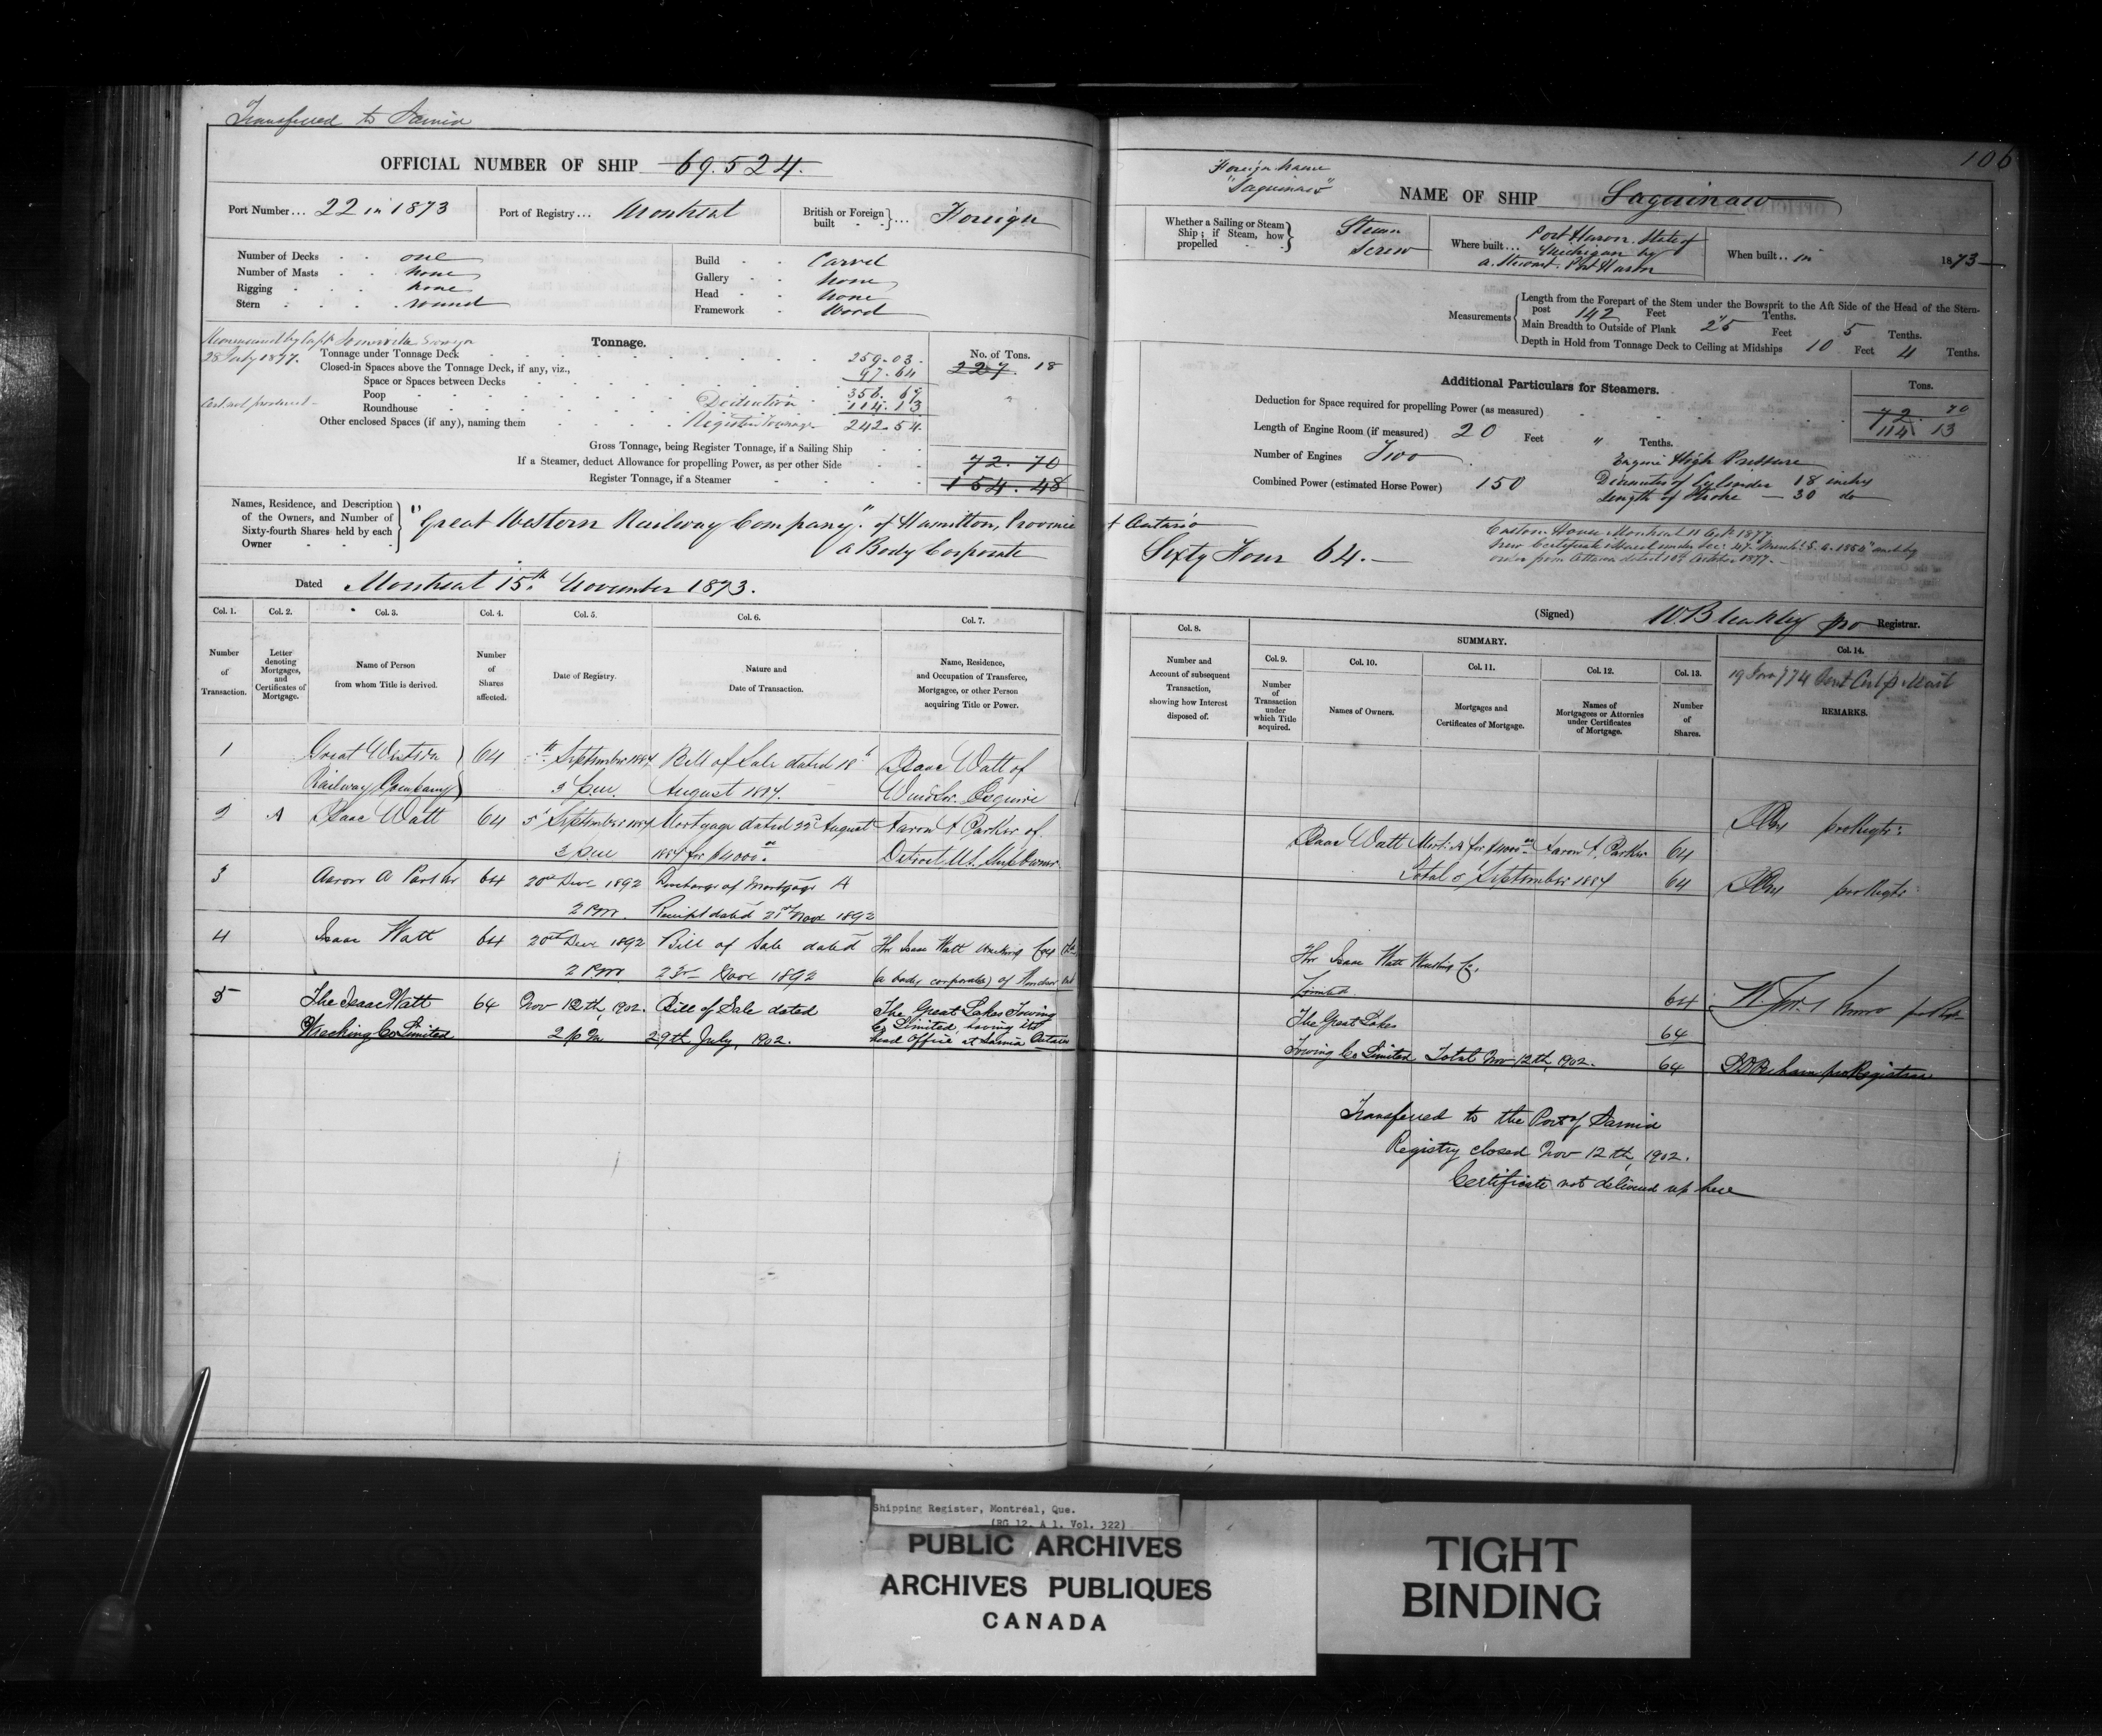 Transferred to Sarnia
OFFICIAL NUMBER OF SHIP 69.524.
Port Number... 22 in 1873
Port of Registry... Montreal
British or Foreign built } ... Foreign
Number of Decks - - one
Number of Masts - - none
Rigging - - - none
Stern - - - round
Build - - Carvel
Gallery - - none
Head - - none
Framework - Wood
Remeasured by Capt. Somerville
28 July 1877.
Tonnage.
No. of Tons.
Tonnage under Tonnage Deck 259.03. 227. 18
Closed-in Spaces above the Tonnage Deck, if any, viz., 97.64
Space or Spaces between Decks
Poop 356. 67
Roundhouse Deduction 114.13
Cert. not produced
Other enclosed Spaces (if any), naming them Register Tonnage 242.54
Gross Tonnage, being Register Tonnage, if a Sailing Ship
If a Steamer, deduct Allowance for propelling Power, as per other Side 72. 70
Register Tonnage, if a Steamer 154. 48
Names, Residence, and Description
of the Owners, and Number of
Sixty-fourth Shares held by each
Owner
"Great Western Railway Company". of Hamilton, Province of Ontario
a Body Corporate Sixty Four 64.
Dated Montreal 15th November 1873.
Col. 1. Col. 2. Col. 3. Col. 4. Col. 5. Col. 6. Col. 7.
Number of Transaction.
Letter denoting Mortgages, and Certificates of Mortgage.
Name of Person from whom Title is derived.
Number of Shares affected.
Date of Registry.
Nature and Date of Transaction.
Name, Residence, and Occupation of Transferee, Mortgagee, or other Person acquiring Title or Power.
1 Great Western 64 September Bill of Sale dated 18th Isaac Watt of
Railway Company 3 p.m. August Windsor. Esquire
2 A Isaac Watt 64 5 September Mortgage dated 22d August Aaron A Parker of
for $4000 Detroit U.S. Ship Owner
3 Aaron A Parker 64 20th Dec 1892 Discharge of Mortgage A
2 P.M. Receipt dated 21st Nov 1892
4 Isaac Watt 64 20th Dec 1892 Bill of Sale dated The Isaac Watt Wrecking Coy
2 P.M. 23rd Nov 1892 (a body corporate) of Windsor Ont
5 The Isaac Watt 64 Nov 12th, 1902. Bill of Sale dated The Great Lakes Towing
Wrecking Co Limited 2 p m 29th July, 1902. Co Limited, having its
head Office at Sarnia Ontario
106
Foreign name
"Saguinaw"
NAME OF SHIP Saguinaw
Whether a Sailing or Steam Ship; if Steam, how propelled } Steam Screw
Where built... Port Huron. State of
Michigan by
A. Stewart. Port Huron
When built.. in 1873
Measurements
Length from the Forepart of the Stem under the Bowsprit to the Aft Side of the Head of the Stern-
post 142 Feet " Tenths.
Main Breadth to Outside of Plank 25 Feet 5 Tenths.
Depth in Hold from Tonnage Deck to Ceiling at Midships 10 Feet 4 Tenths.
Additional Particulars for Steamers.
Tons.
Deduction for Space required for propelling Power (as measured) 72. 70
114 13
Length of Engine Room (if measured) 20 Feet " Tenths.
Number of Engines Two
Engine High Pressure
Combined Power (estimated Horse Power) 150
Diameter of Cylinder 18 inches
Length of Stroke — 30 do
Custom House Montreal 11 Oct. 1877
New Certificate issued under Sec:
order from Ottawa dated 10th October 1877.
(Signed) W B Bleakley pro Registrar.
Col. 8. SUMMARY. Col. 9. Col. 10. Col. 11. Col. 12. Col. 13. Col. 14.
Number and Account of subsequent Transaction, showing how Interest disposed of.
Number of Transaction under which Title acquired.
Names of Owners.
Mortgages and Certificates of Mortgage.
Names of Mortgagees or Attornies under Certificates of Mortgage.
Number of Shares.
REMARKS.
Isaac Watt Mort: A for $4000 Aaron A. Parker 64
Total 5 September 64
The Isaac Watt Wrecking Co,
Limited 64
The Great Lakes 64
Towing Co Limited Total Nov 12th, 1902. 64 pro Registrar
Transferred to the Port of Sarnia
Registry closed Nov 12th, 1902.
Certificate not delivered up here
Shipping Register, Montréal, Que.
(RG 12, A 1, Vol. 322)
PUBLIC ARCHIVES
ARCHIVES PUBLIQUES
CANADA
TIGHT
BINDING